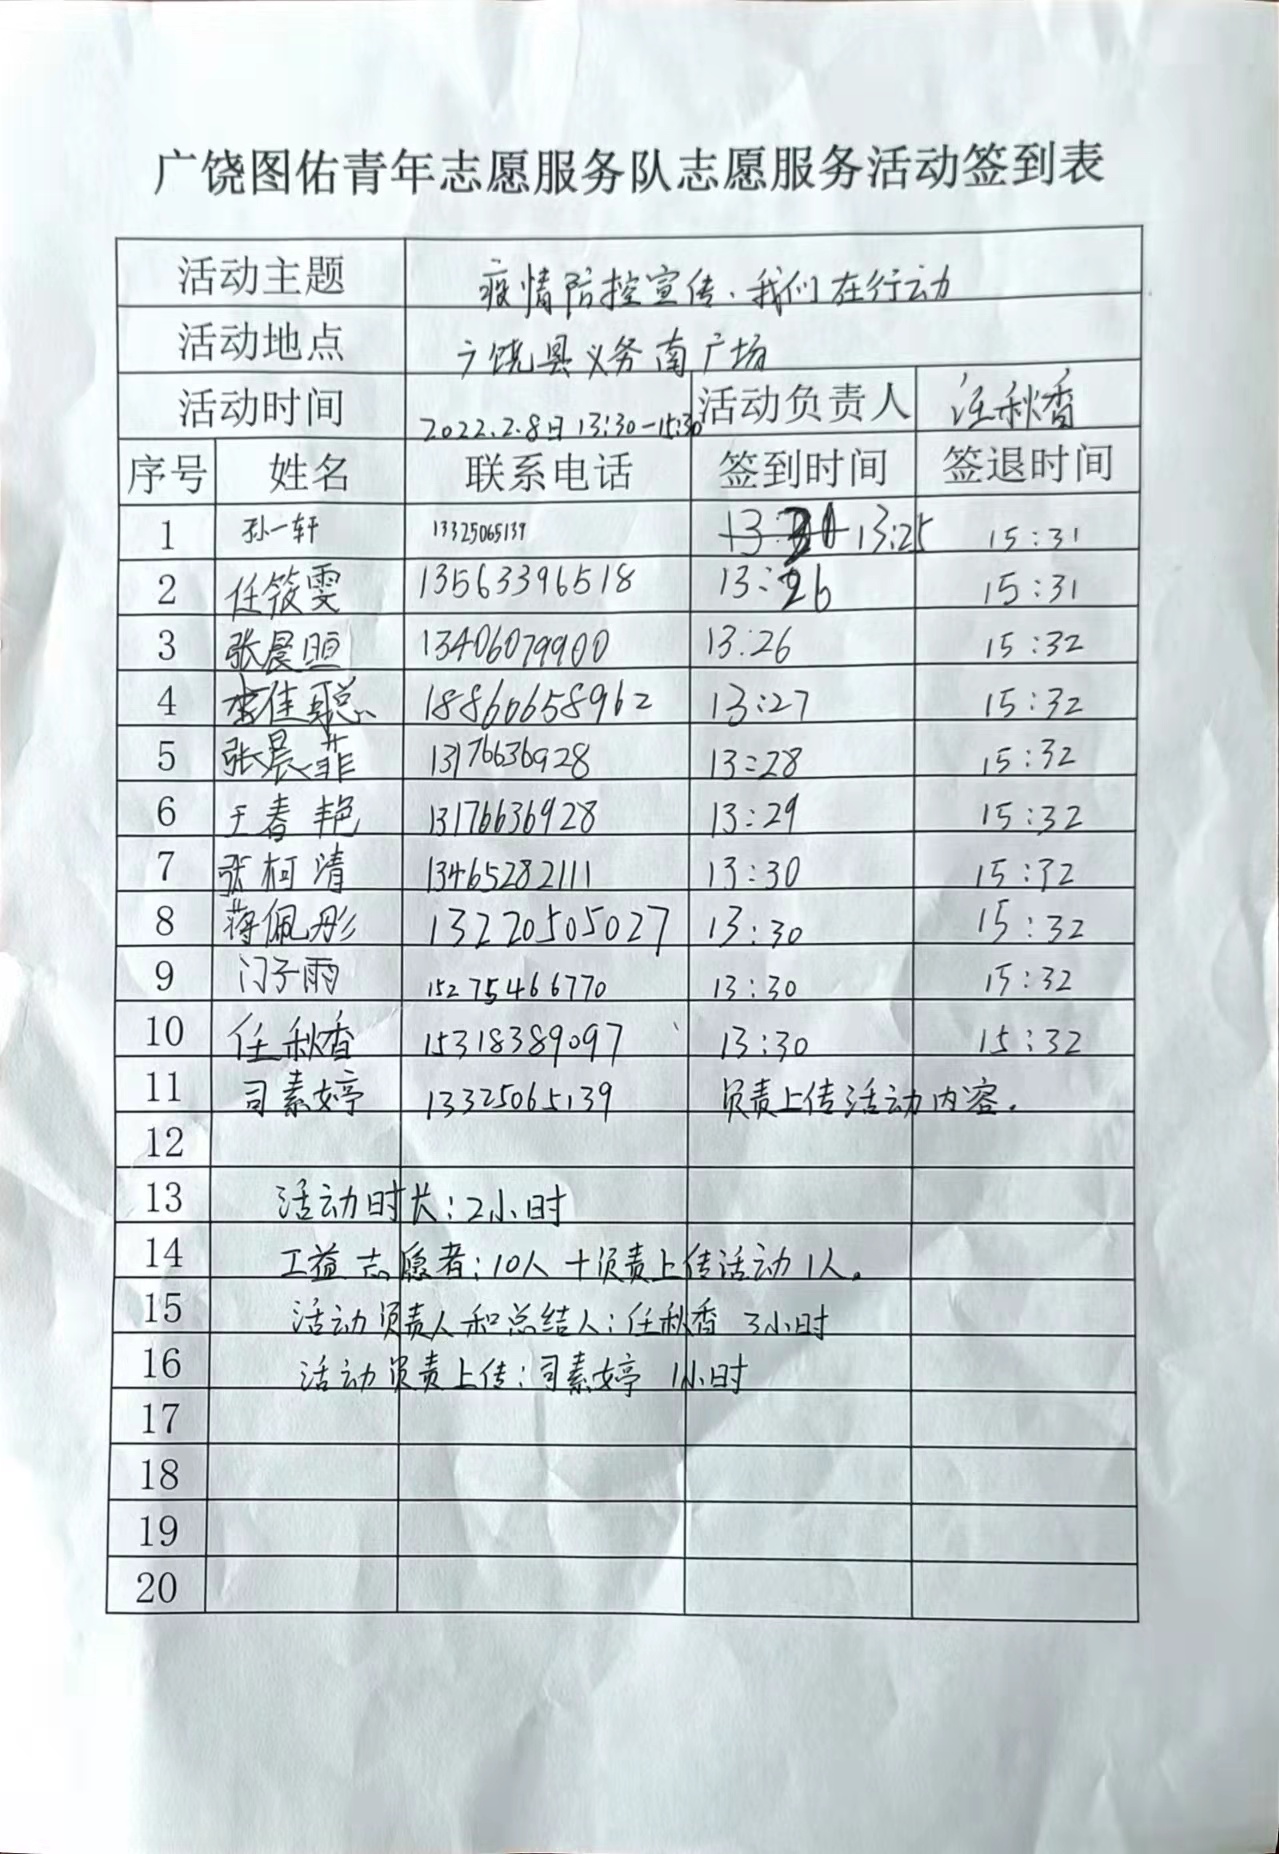 广饶图佑青年志愿服务队志愿服务活动签到表
活动主题 疫情防控宣传、我们在行动
活动地点 广饶县义务南广场
活动时间 2022.2.8日 13:30-15:30 活动负责人 任秋香
序号 姓名 联系电话 签到时间 签退时间
1 孙一轩 13325065139 13:25 15:31
2 任筱雯 13563396518 13:26 15:31
3 张晨煦 13406079900 13:26 15:32
4 李佳聪 18860658962 13:27 15:32
5 张晨菲 13176636928 13:28 15:32
6 王春艳 13176636928 13:29 15:32
7 张柯清 13465282111 13:30 15:32
8 蒋佩彤 13220505027 13:30 15:32
9 门子雨 15275466770 13:30 15:32
10 任秋香 15318389097 13:30 15:32
11 司素婷 13325065139 负责上传活动内容.
12
13 活动时长:2小时
14 工益志愿者:10人+负责上传活动1人。
15 活动负责人和总结人:任秋香 3小时
16 活动负责上传:司素婷 1小时
17
18
19
20